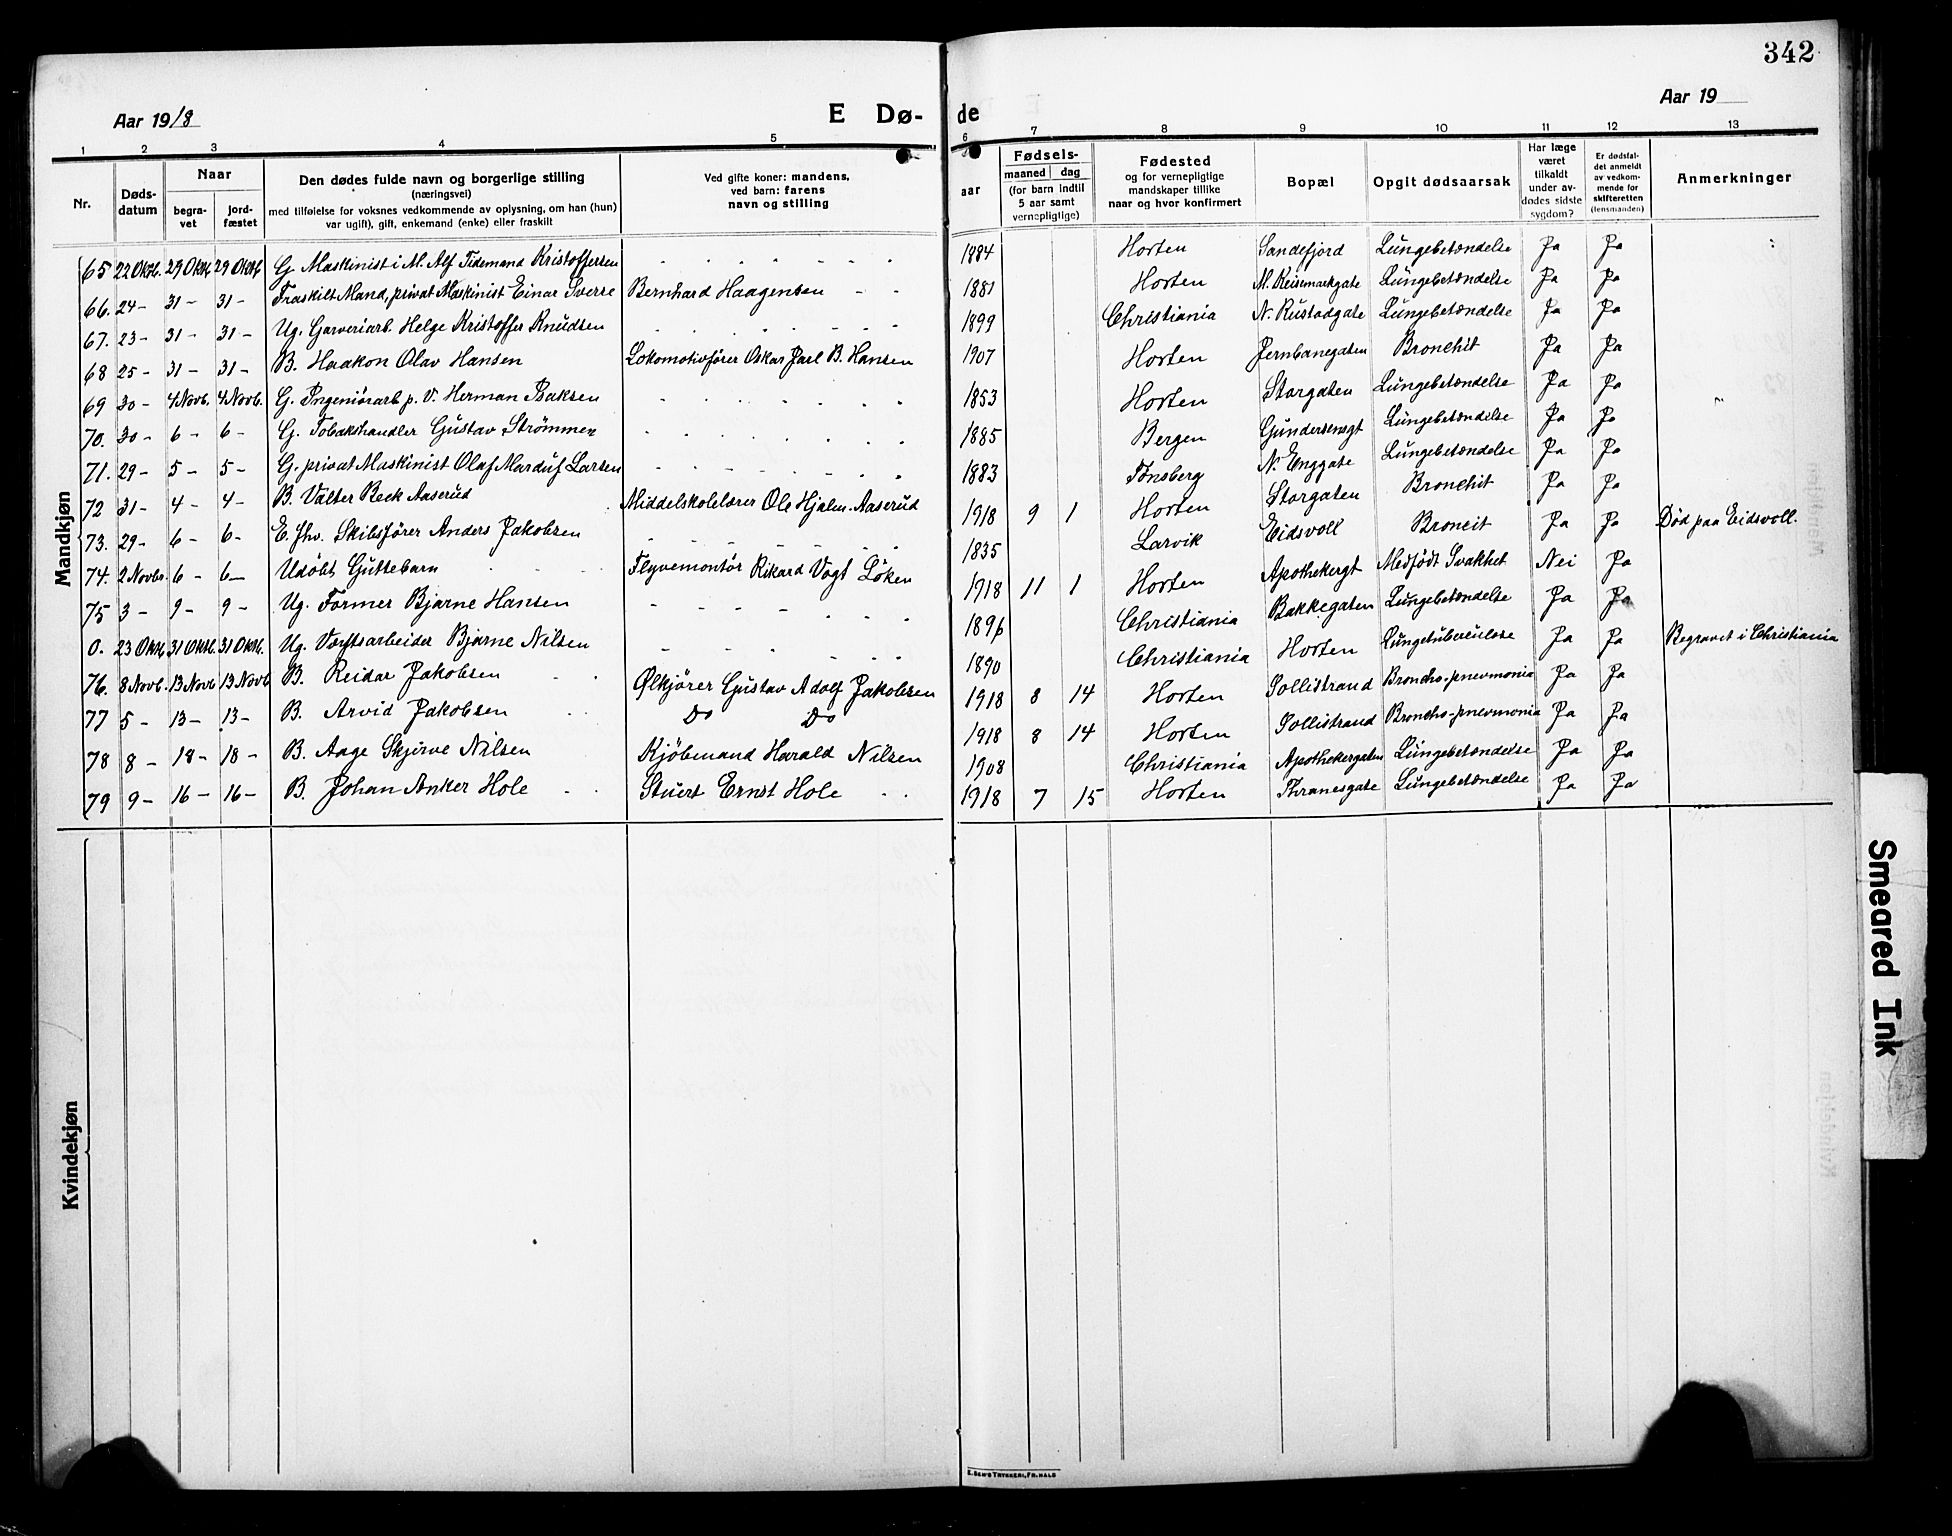 342
Aar 1918
E Dø-
de
Aar 19
1 2 3 4 5 6 7 8 9 10 11 12 13
Nr.
Døds-
datum
Naar
begra-
vet
jord-
fæstet
Den dødes fulde navn og borgerlige stilling
(næringsvei)
med tilføielse for voksnes vedkommende av oplysning, om han (hun)
var ugift), gift, enkemand (enke) eller fraskilt
Ved gifte koner: mandens,
ved barn: farens
navn og stilling
aar
Fødsels-
maaned dag
(for barn indtil
5 aar samt
vernepligtige)
Fødested
og for vernepligtige
mandskaper tillike
naar og hvor konfirmert
Bopæl
Opgit dødsaarsak
Har læge
været
tilkaldt
under av-
dødes sidste
sygdom?
Er dødsfal-
det anmeldt
av vedkom-
mende for
skifteretten
(lensmanden)
Anmerkninger
Mandkjøn
65 22 Oktb. 29 Oktb. 29 Oktb. G. Maskinist i M. Alf Tidemand Kristoffersen - - - - - - 1884 Horten Sandefjord Lungebetændelse Ja Ja
66. 24 - 31 - 31 - Fraskilt Mand, privat Maskinist Einar Sverre Bernhard Haagensen - - 1881 Horten N. Reismarkgate Lungebetændelse Ja Ja
67. 23 - 31 - 31 - Ug. Garveriarb. Helge Kristoffer Knudsen - - - - - - 1899 Christiania N. Rustadgate Lungebetændelse Ja Ja
68 25 - 31 - 31 - B. Haakon Olav Hansen Lokomotivfører Oskar Jarl B. Hansen 1907 Horten Jernbanegaten Bronchit Ja Ja
69 30 - 4 Novb. 4 Novb. G. Ingeniørarb p. V. Herman Isaksen - - - - - - 1853 Horten Storgaten Lungebetændelse Ja Ja "
70. 30 - 6 - 6 - G. Tobakshandler Gustav Strømmen - - - - - - 1885 Bergen Gundersensgt Lungebetændelse Ja Ja
71. 29 - 5 - 5 - G. privat Maskinist Olaf Marduf Larsen - - - - - - 1883 Tønsberg N. Enggate Lungebetændelse Ja Ja
72 31 - 4 - 4 - B. Valter Beck Aaserud Middelskolelærer Ole Hjalm. Aaserud 1918 9 1 Horten Storgaten Bronchit Ja Ja
73. 29 - 6 - 6 - E. fhv. Skibsfører Anders Jakobsen - - - - - - 1835 Larvik Eidsvoll Broncit Ja Ja Død paa Eidsvoll.
74. 2 Novbr. 6 - 6 - Udøbt Guttebarn Flyvemontør Rikard Vogt Løken 1918 11 1 Horten Apothekergt Medfødt Svakhet Nei Ja
75 3 - 9 - 9 - Ug. Former Bjarne Hansen - - - - - - 1896 Christiania Bakkegaten Lungebetændelse Ja Ja
0. 23 Oktb. 31 Oktb. 31 Oktb. Ug. Værftsarbeider Bjarne Nilsen - - - - - - 1890 Christiania Horten Lungetuberculose Ja Ja Begravet i Christiania
76. 8 Novb. 13 Novb 13 Novb B. Reidar Jakobsen Ølkjører Gustav Adolf Jakobsen 1918 8 14 Horten Sollistrand Broncho-pnevmonia Ja Ja
77 5 - 13 - 13 - B. Arvid Jakobsen Do Do 1918 8 14 Horten Sollistrand Broncho-pnevmonia Ja Ja
78 8 - 18 - 18 - B. Aage Skjirve Nilsen Kjøbmand Harald Nilsen 1908 Christiania Apothekergaten Lungebetændelse Ja Ja
79 9 - 16 - 16 - B. Johan Anker Hole Stuert Ernst Hole 1918 7 15 Horten Thranesgate Lungebetændelse Ja Ja
Kvindekjøn
Smeared Ink
E. SEM'S TRYKKERI, FR.HALD